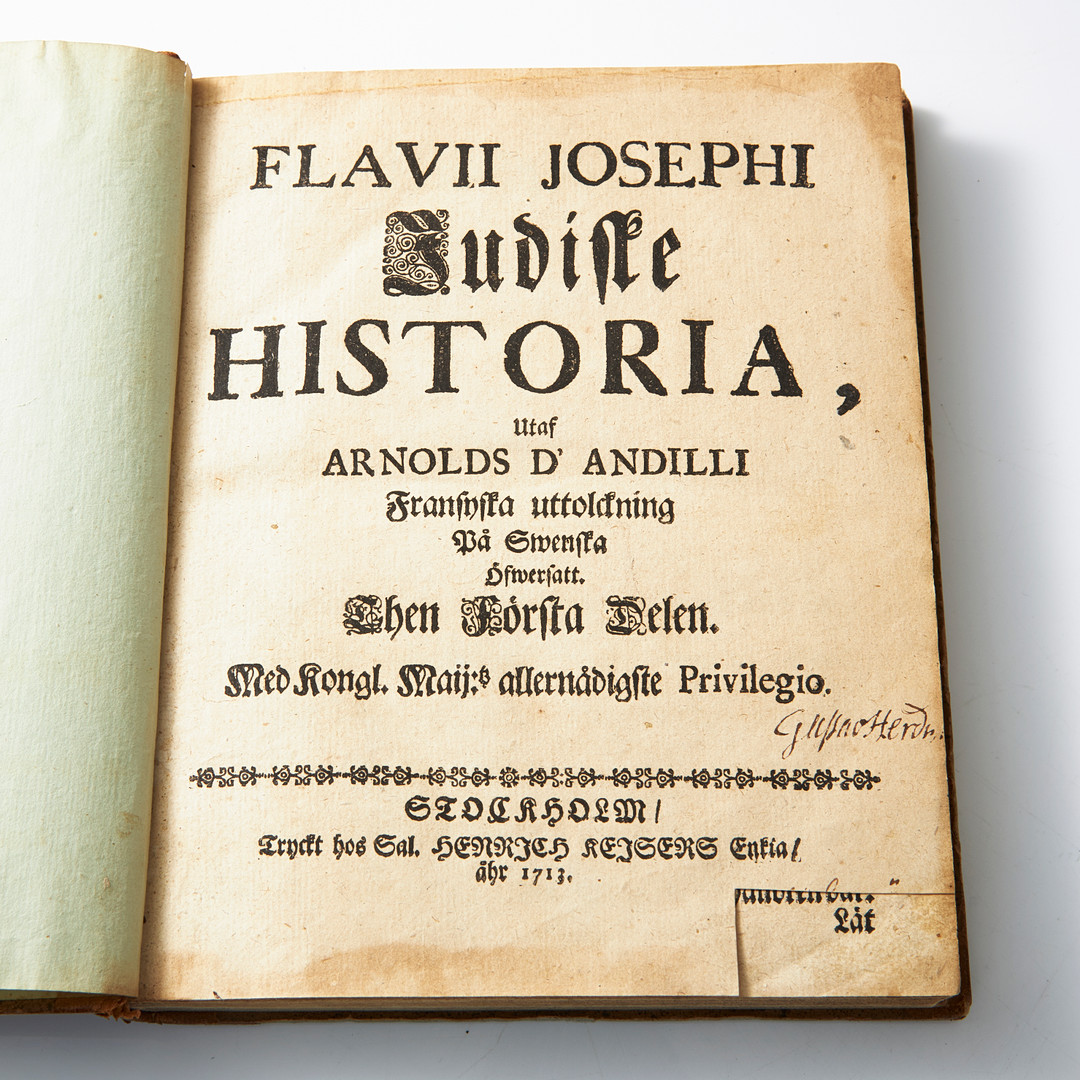 FLAVII JOSEPHI
Judiſke
HISTORIA,
Utaf
ARNOLDS D' ANDILLI
Franſyſka uttolckning
På Swenſka
Öfwerſatt.
Then Förſta Delen.
Med Kongl. Maij:ᵗˢ allernådigſte Privilegio.
STOCKHOLM/
Tryckt hos Sal. HENRICH KEJSERS Enkia/
åhr 1713.
Låt